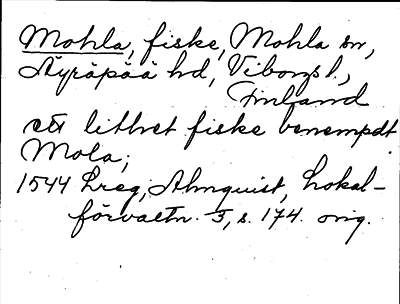 Mohla, fiske, Mohla sn,
Äyräpää hd, Viborgsl.,
Finland
ett lithet fiske benempdt
Mola;
1544 Lreg; Almquist, Lokal-
förvaltn. I, s. 174. orig.